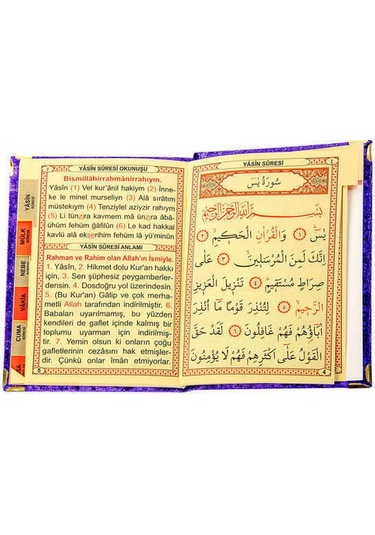 YÂSÎN SÛRESİ OKUNUŞU
Bismillâhirrahmânirrahıym.
Yâsîn (1) Vel kur'ânil hakiym (2) İnne-
ke le minel murseliyn (3) Alâ sırâtım
müstekıym (4) Tenziylel aziyzir rahıym
(5) Li tünzıra kavmem mâ ünzira âbâ-
ühüm fehüm gâfilûn (6) Le kad hakkal
kavlü alâ ekserihim fehüm lâ yü'minûn
YÂSÎN SÛRESİ ANLAMI
Rahman ve Rahim olan Allah'ın İsmiyle.
1. Yâsîn, 2. Hikmet dolu Kur'an hakkı
için, 3. Sen şüphesiz peygamberler-
densin. 4. Dosdoğru yol üzerindesin.
5. (Bu Kur'an) Gâlip ve çok merha-
metli Allah tarafından indirilmiştir. 6.
Babaları uyarılmamış, bu yüzden
kendileri de gaflet içinde kalmış bir
toplumu uyarman için indirilmiş-
tir. 7. Yemin olsun ki onların çoğu
gafletlerinin cezasını hak etmişler-
dir. Çünkü onlar iman etmiyorlar.
5
YÂSÎN
SÛRESİ
MÜLK
SÛRESİ
NEBE
SÛRESİ
VÂKIA
CUMA
SÛRESİ
YÂSÎN SÛRESİ
سُورَةُ يٰسٓ
بِسْمِ اللّٰهِ الرَّحْمٰنِ الرَّحِيمِ
يٰسٓ ﴿١﴾ وَالْقُرْاٰنِ الْحَكِيمِ ﴿٢﴾
اِنَّكَ لَمِنَ الْمُرْسَلِينَ ﴿٣﴾ عَلٰى
صِرَاطٍ مُسْتَقِيمٍ ﴿٤﴾ تَنْزِيلَ الْعَزِيزِ
الرَّحِيمِ ﴿٥﴾ لِتُنْذِرَ قَوْمًا مَٓا اُنْذِرَ
اٰبَٓاؤُهُمْ فَهُمْ غَافِلُونَ ﴿٦﴾ لَقَدْ حَقَّ
الْقَوْلُ عَلٰٓى اَكْثَرِهِمْ فَهُمْ لَا يُؤْمِنُونَ
4